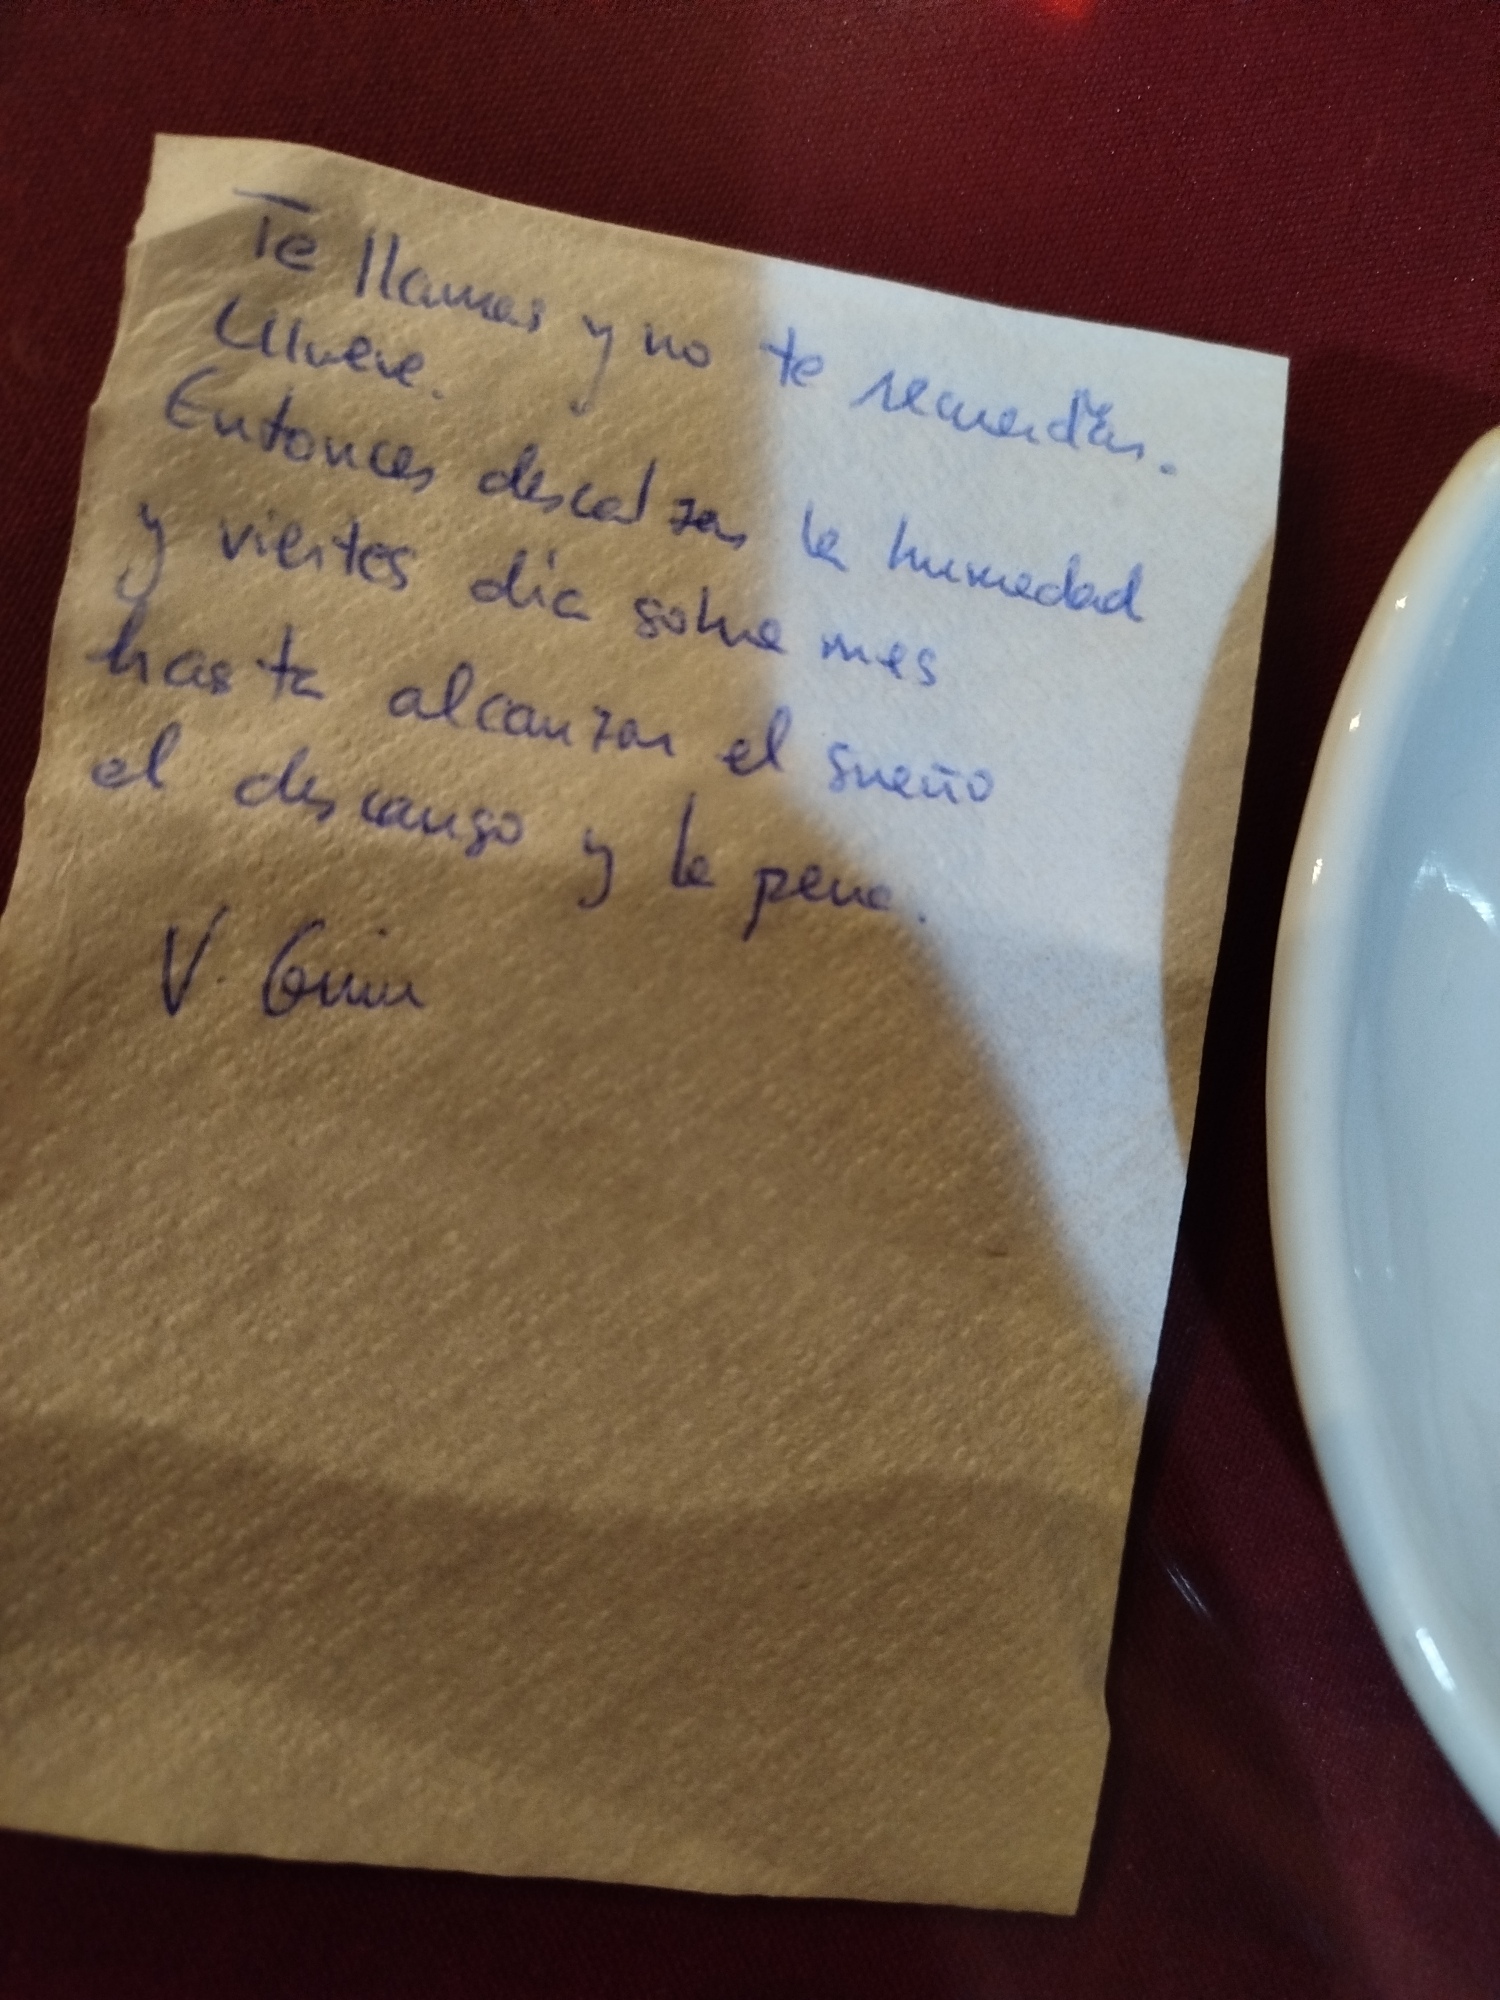 Te llamas y no te recuerdas.
Llueve.
Entonces descalzas la humedad
y viertes día sobre mes
hasta alcanzar el sueño
el descanso y la pena.
V.